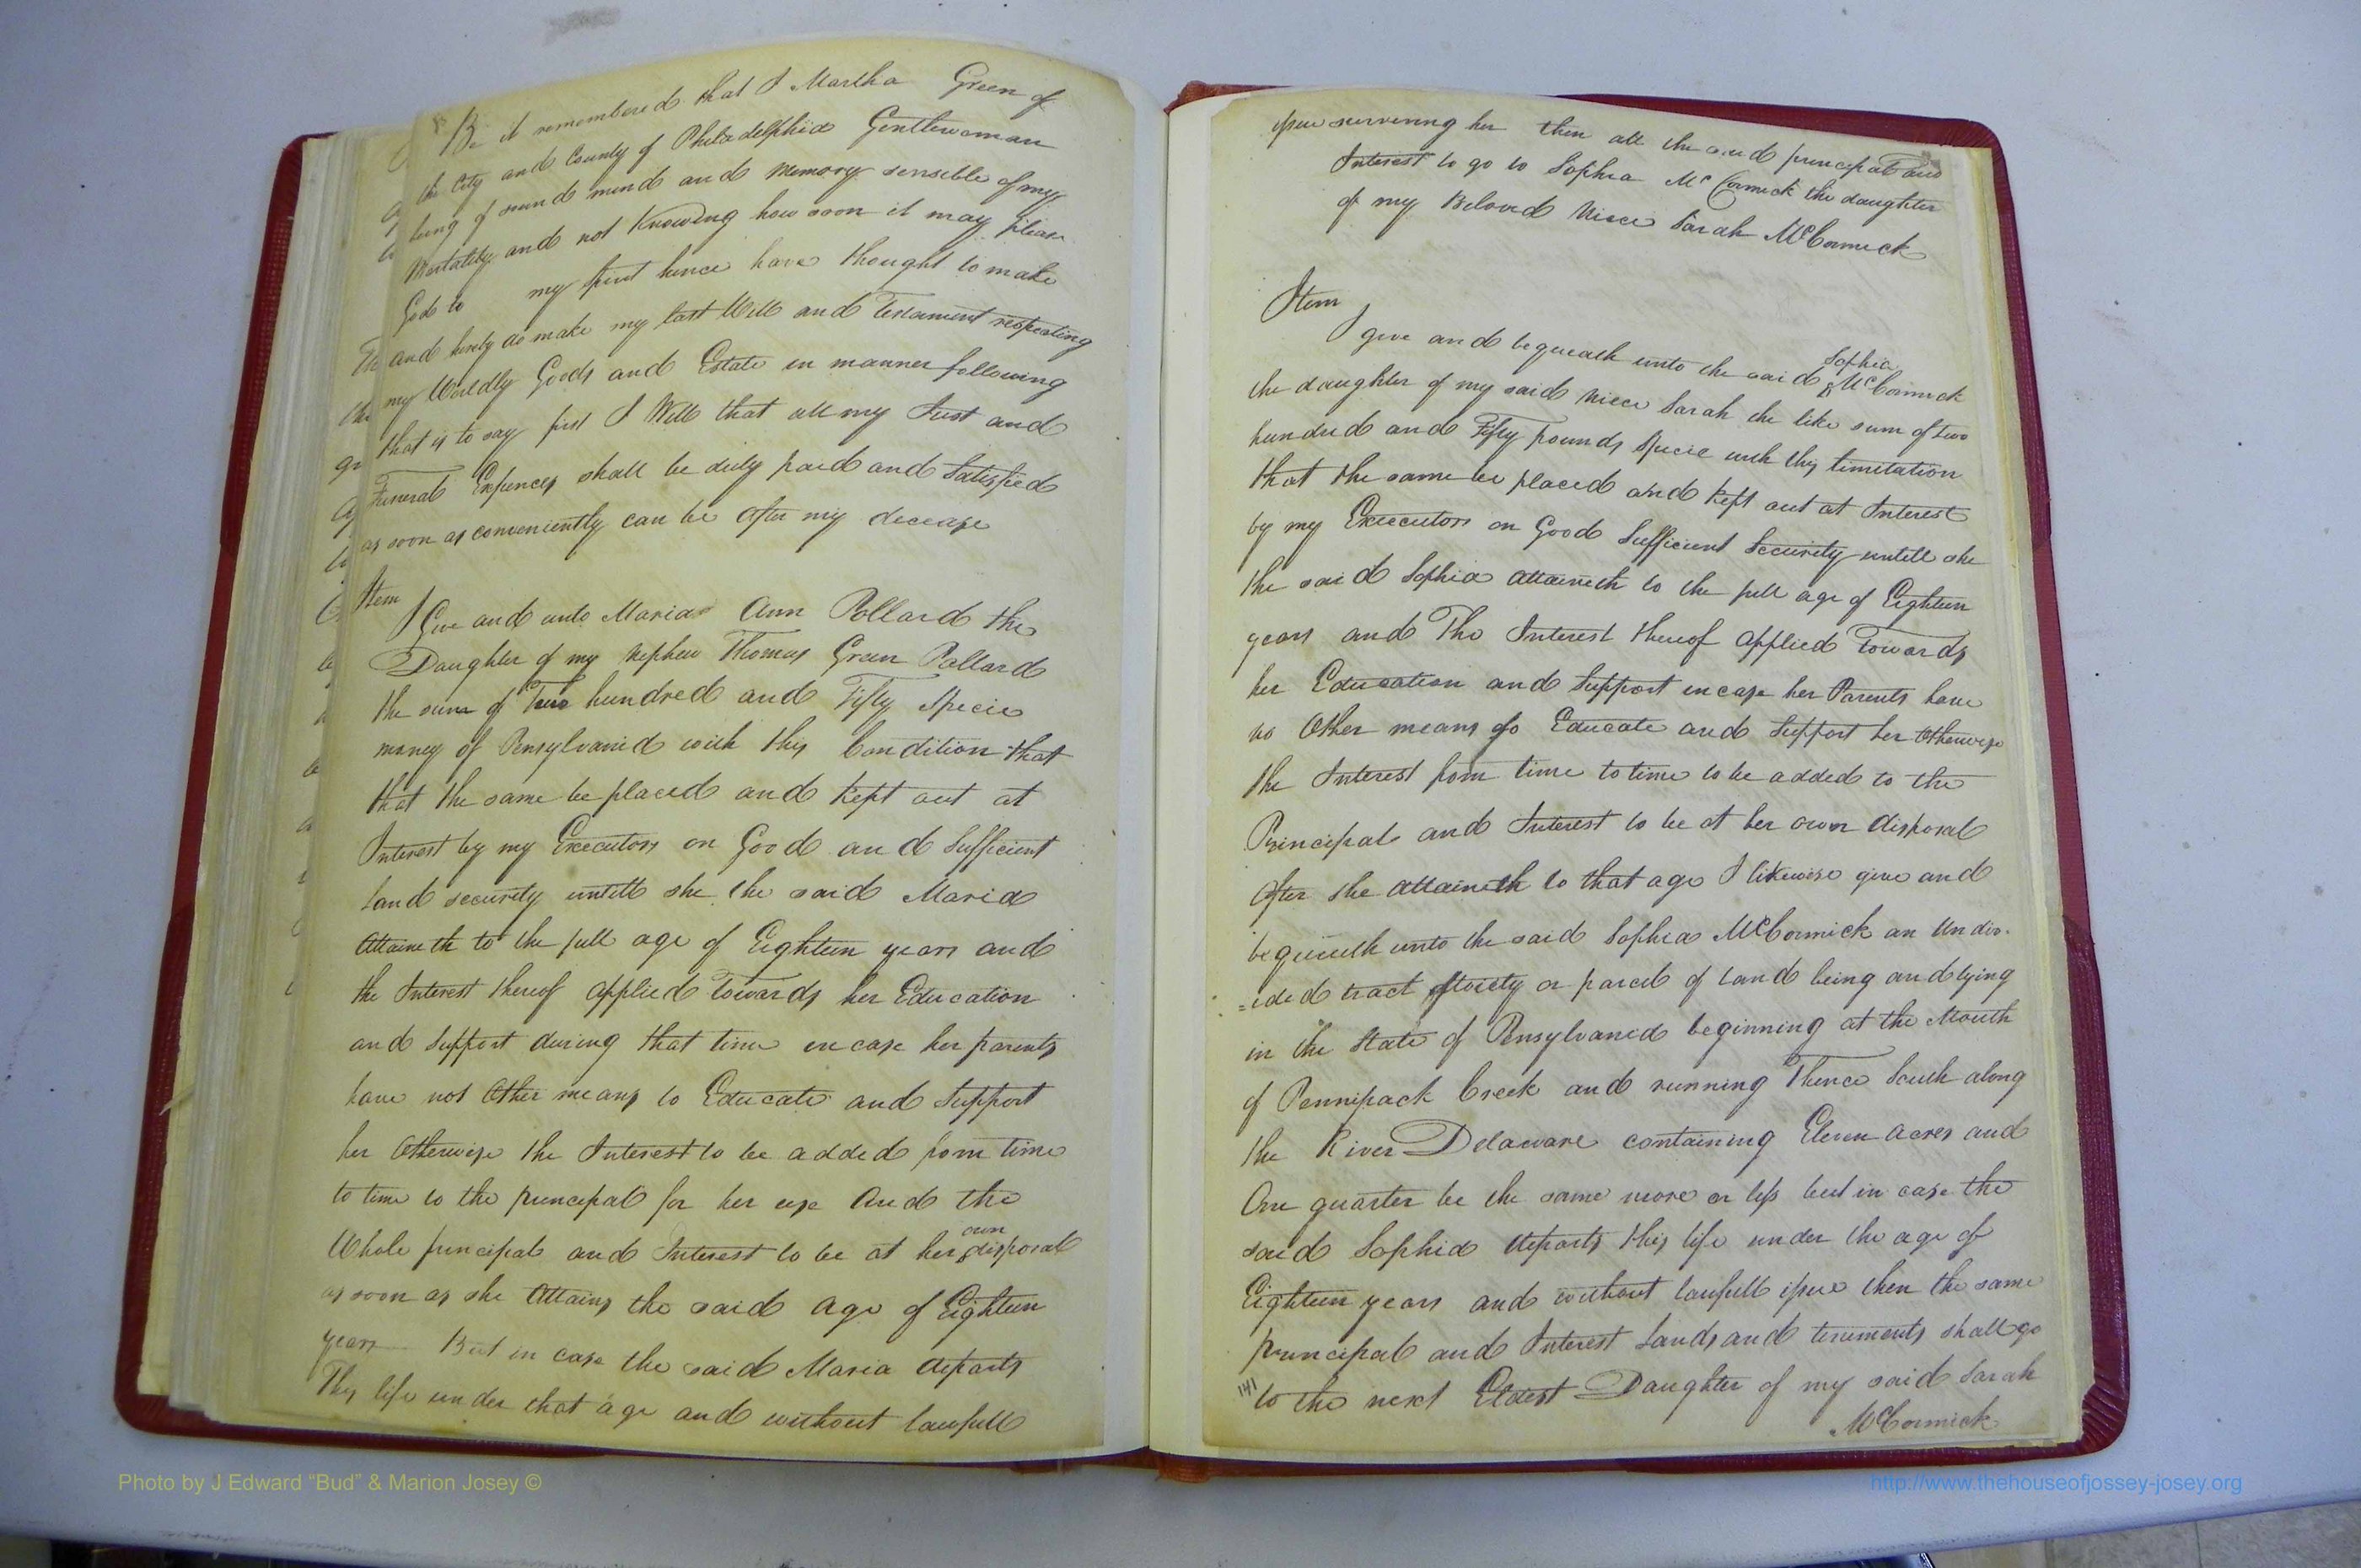 Be it remembered that I Martha Green of
the City and County of Philadelphia Gentlewoman
being of sound mind and Memory sensible of my
Mortality and not Knowing how soon it may please
God to my spirit hence have thought to make
and hereby do make my last Will and Testament respecting
my Worldly Goods and Estate in manner following
that is to say first I Will that all my Just and
Funeral Expences shall be duly paid and Satisfied
as soon as conveniently can be after my decease
Item
I Give and unto Maria Ann Pollard the
Daughter of my Nephew Thomas Green Pollard
the sum of Two hundred and Fifty Specie
money of Pensylvania with this Condition that
that the same be placed and Kept out at
Interest by my Executors on Good and Sufficient
Land security untill she the said Maria
Attaineth to the full age of Eighteen years and
the Interest thereof applied Towards her Education
and Support during that time in case her parents
have not Other means to Educate and Support
her Otherwise the Interest to be added from time
to time to the principal for her use And the
own
Whole principal and Interest to be at her disposal
as soon as she Attains the said Age of Eighteen
years But in case the said Maria departs
This life under that age and without lawfull
issue surviving her then all the said principal and
Interest to go to Sophia McCormick the daughter
of my Beloved Niece Sarah McCormick
Item
Sophia
I give and bequeath unto the said McCormick
the daughter of my said Niece Sarah the like sum of two
hundred and Fifty pounds Specie with this limitation
that the same be placed and Kept out at Interest
by my Executors on Good Sufficient Security untill she
the said Sophia attaineth to the full age of Eighteen
years and The Interest thereof applied Towards
her Education and Support in case her Parents have
no Other means to Educate and Support her Otherwise
the Interest from time to time to be added to the
Principal and Interest to be at her own disposal
after she attaineth to that age I likewise give and
bequeath unto the said Sophia McCormick an Undiv-
=ided tract or parcel of Land being and lying
in the State of Pensylvania beginning at the Mouth
of Pennipack Creek and running Thence South along
the River Delaware containing Eleven Acres and
One quarter be the same more or less but in case the
said Sophia departs this life under the age of
Eighteen years and without lawfull issue then the same
principal and Interest Lands and tenements shall go
141 to the next Eldest Daughter of my said Sarah
McCormick
Photo by J Edward “Bud” & Marion Josey ©
http://www.thehouseofjossey-josey.org